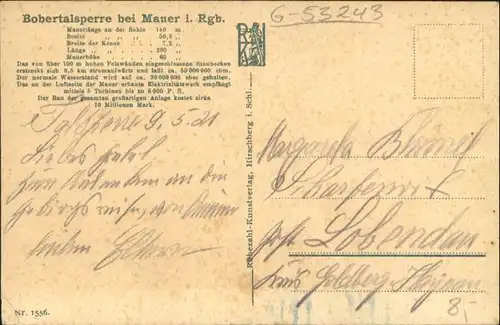 Bobertalsperre bei Mauer i. Rgb.
Mauerlänge an der Sohle 140 m
Breite „ „ „ 50,2 „
Breite der Krone „ 7,2 „
Länge „ „ „ 280 „
Mauerhöhe „ „ 60 „
Das von über 100 m hohen Felswänden eingeschlossene Staubecken
erstreckt sich 8,5 km stromaufwärts und faßt ca. 50 000 000 cbm.
Der normale Wasserstand wird auf ca. 20 000 000 cbm gehalten.
Das an der Luftseite der Mauer erbaute Elektrizitätswerk empfängt
mittels 5 Turbinen bis zu 8000 P. S.
Der Bau der gesamten großartigen Anlage kostet zirka
10 Millionen Mark.
G-53243
Talsperre 9.5.21
Liebes
zum Andenken an die
Gebirgsreise, von
Eltern
Rübezahl-Kunstverlag, Hirschberg i. Schl.
Margareta
Post Lobendau
Goldberg
8,-
Nr. 1556.